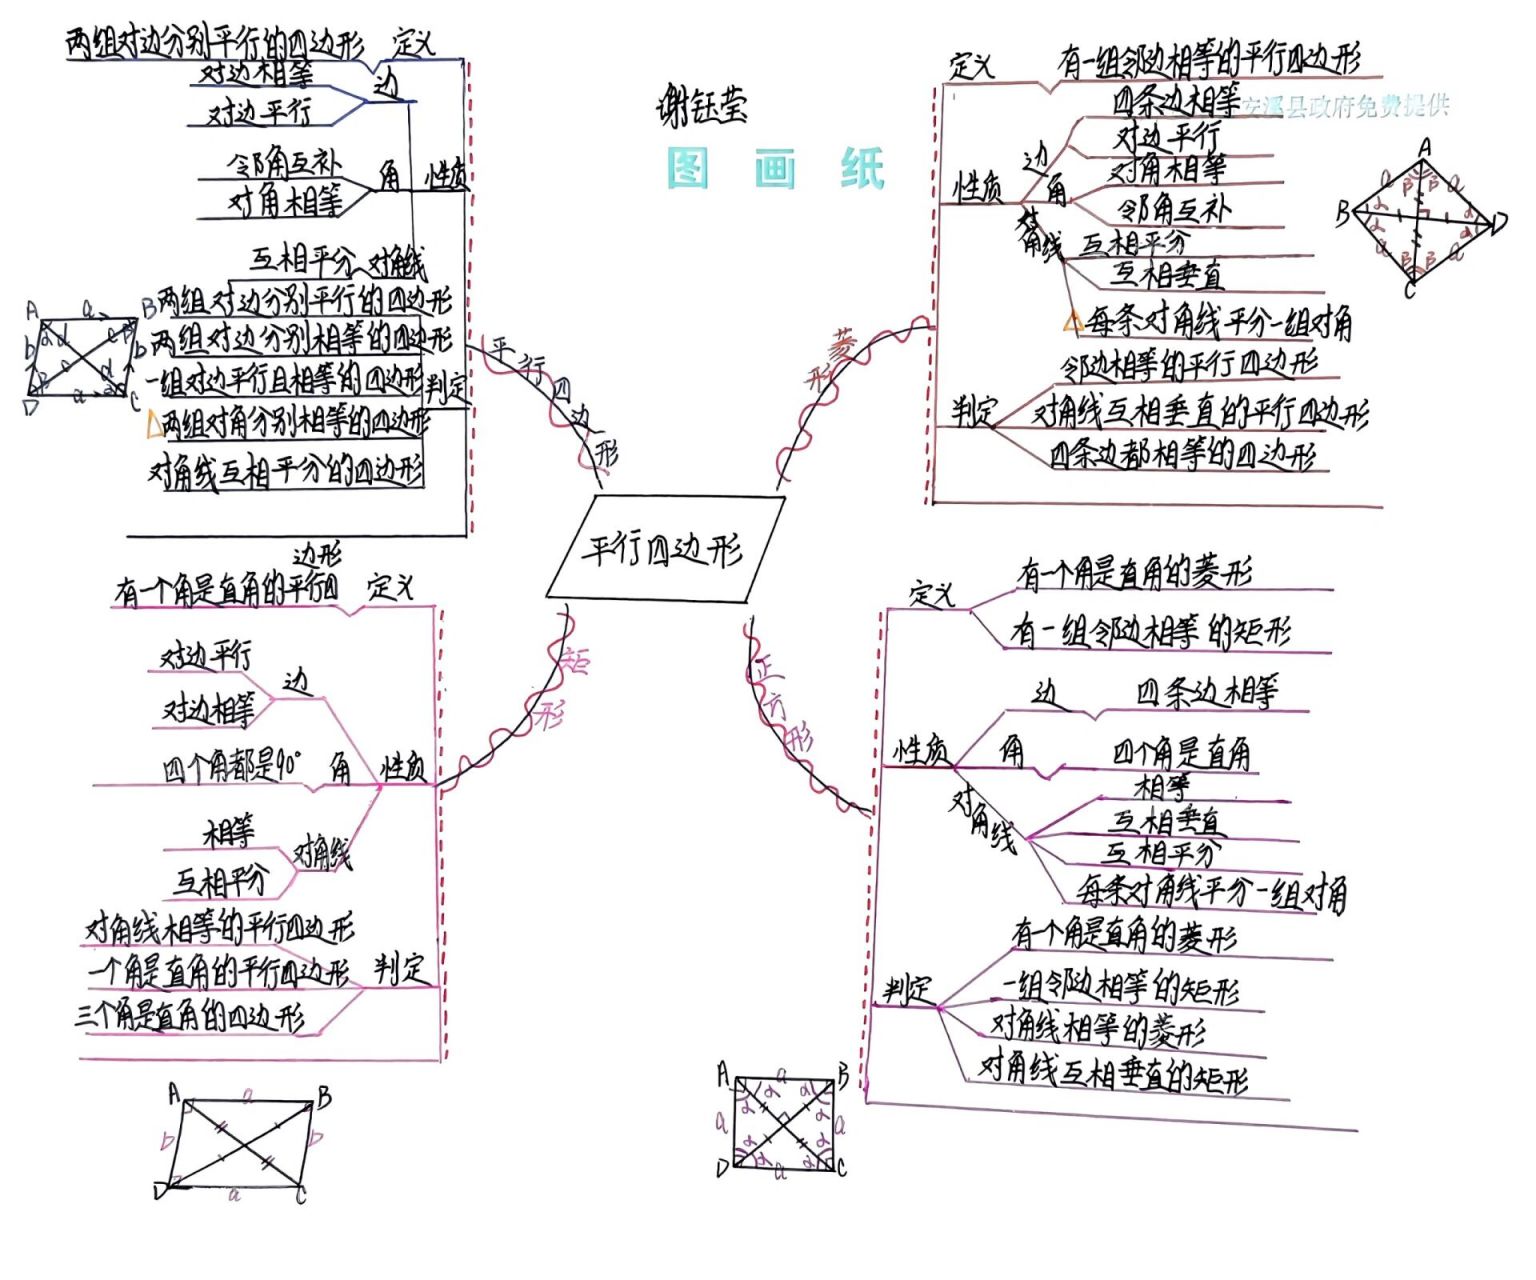 谢钰莹
图画纸
安溪县政府免费提供
平行四边形
平行四边形
定义
两组对边分别平行的四边形
性质
边
对边相等
对边平行
角
邻角互补
对角相等
对角线
互相平分
判定
两组对边分别平行的四边形
两组对边分别相等的四边形
一组对边平行且相等的四边形
两组对角分别相等的四边形
对角线互相平分的四边形
A a B
b b
D a C
菱形
定义
有一组邻边相等的平行四边形
性质
边
四条边相等
对边平行
角
对角相等
邻角互补
对角线
互相平分
互相垂直
每条对角线平分一组对角
判定
邻边相等的平行四边形
对角线互相垂直的平行四边形
四条边都相等的四边形
A
a β β a
B α α α α D
a β β a
C
矩形
定义
有一个角是直角的平行四
边形
性质
边
对边平行
对边相等
角
四个角都是90°
对角线
相等
互相平分
判定
对角线相等的平行四边形
一个角是直角的平行四边形
三个角是直角的四边形
A a B
b b
D a C
正方形
定义
有一个角是直角的菱形
有一组邻边相等的矩形
性质
边
四条边相等
角
四个角是直角
对角线
相等
互相垂直
互相平分
每条对角线平分一组对角
判定
有一个角是直角的菱形
一组邻边相等的矩形
对角线相等的菱形
对角线互相垂直的矩形
A a B
α α α α
a a
α α α α
D a C